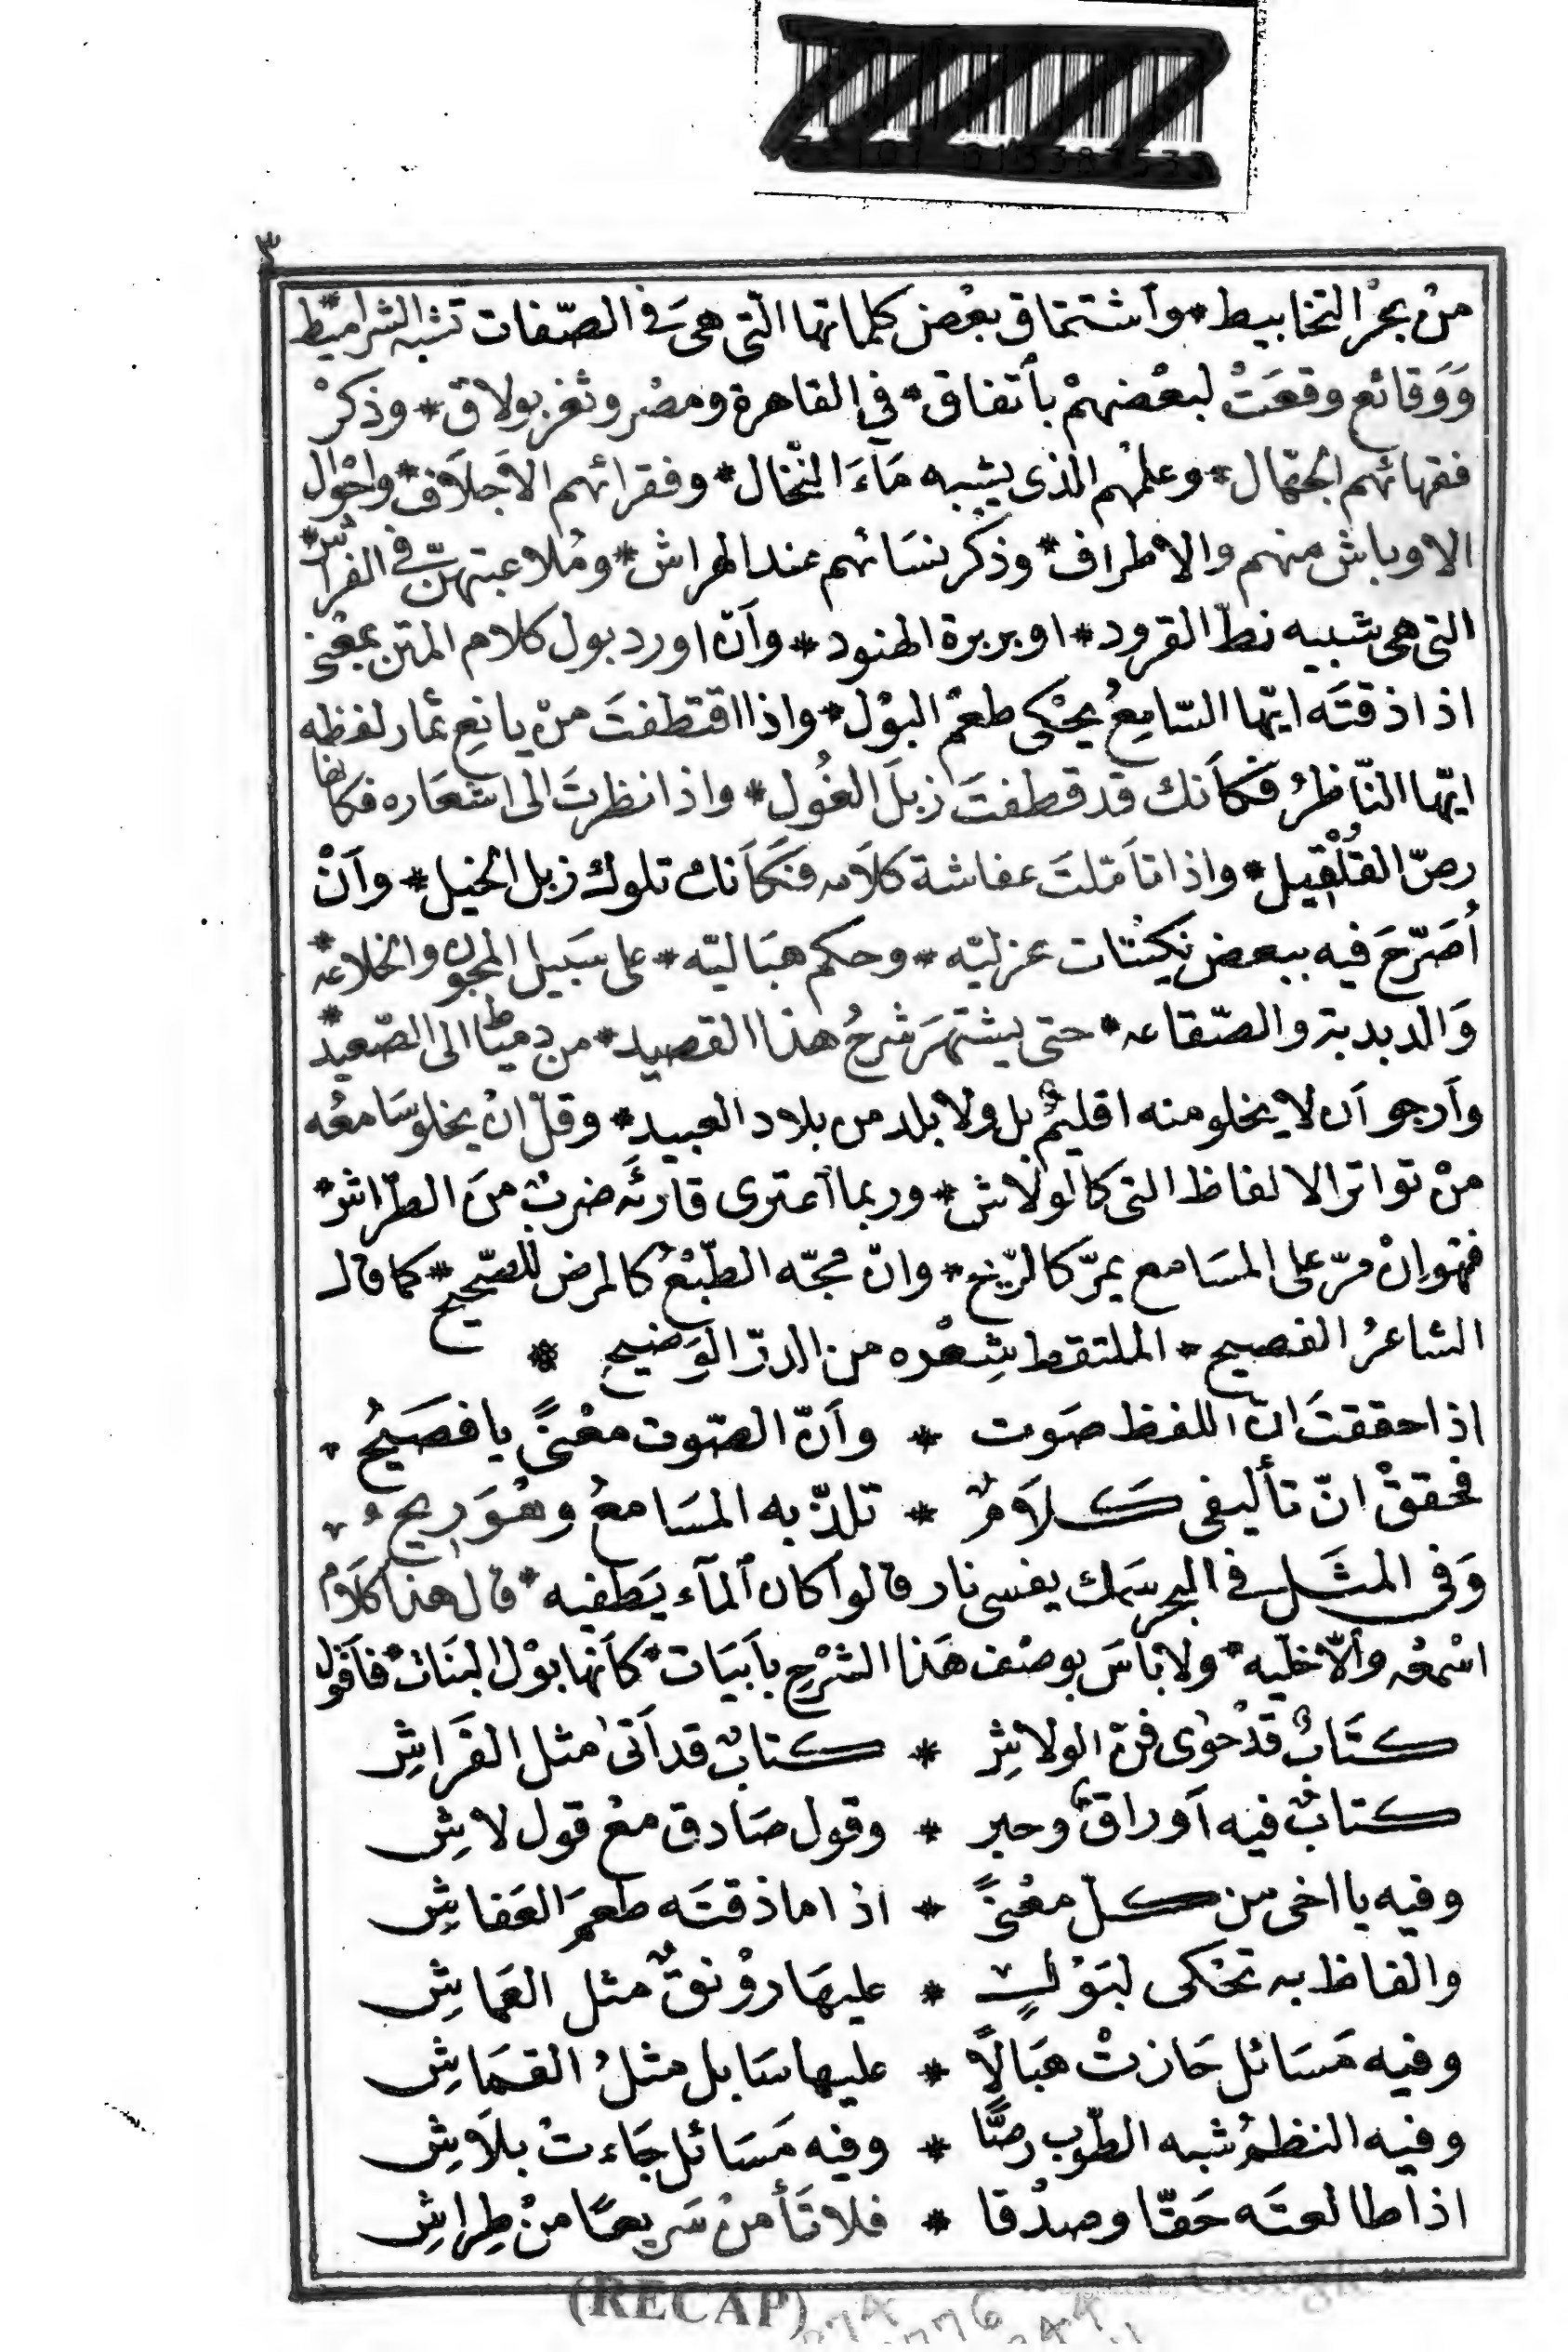 ٣
منْ بحْر التخابيط * وآشتقاق بعْض كلماتها الّتى هىَ فى الصّفات تشبه الشراميط *
وَوَقائع وقعَتْ لبعْضهمْ بآتفاق * فى القاهرة ومصْر وثغر بولاق * وذكرْ
فقهائهم الجهّال * وعلمْهم الذى يشبه مَاءَ النّخال * وفقرائهم الاَجلاَف * واحْوال
الاوباش منهم والاطراف * وذكر نسَائهم عند الهراش * ومُلاعبتهنّ فى الفراش *
التى هى شبيه نطّ القرود * او بربرة الهنود * وآنْ اورد بول كلام المتن بمعْنى
اذا ذقتَه ايّها السّامِعُ يحْكى طعْمَ البوْل * واذا اقتطفتَ منْ يانعِ ثمار لفظه
ايّها النّاظرُ فكاَنك قد قطفتَ زبلَ الغُول * واذا نظرتَ الى اشعَاره فكانها
رصّ القُلْقيل * واذا تاَمّلتَ عفاشة كلاَمه فكاَنك تلوك زبل الخيل * وآنْ
أصَرّحَ فيه ببعض نكيْتات عزليّه * وحكم هبَاليّه * على سَبيل المجون والخلاعه *
وَالدبدبة والصّقاعه * حتى يشتهرَ شرحُ هذا القصيد * من دميَاط الى الصّعيد *
وآرجو آن لا يخلو منه اقليمٌ بل ولا بلد من بلاد العبيد * وقلّ انْ يخلو سَامعُه
منْ تواتر الالفاظ التى كالولاش * وربما آعترى قارئَه ضربٌ منَ الطّراش *
فهو انْ مرّ على المسَامع يمرّ كالرّيح * وانْ مجّه الطّبْعُ كالمرض للصّحيح * كما قال
الشاعرُ الفصيح * الملتقط شِعْره من الدرّ الوَضيح *
اذا حققتَ انّ اللفظ صَوت * وآنّ الصّوت معْنىً يا فصَيحُ
فحققْ انّ تأليفى كلاَمٌ * تلذّ به المسَامعُ وهُوَ ريحُ
وَفى المثَل فى البحر سمَك يفسى نار قالوا كان المآء يَطفيه * قال هذا كلاَم
اسْمعْه وآلاّ خلّيه * ولا باَسَ بوصْف هَذا الشرْح باَبيَات * كاَنها بوْل البنَات * فاَقول
كتَابٌ قدْ حوٰى فنّ الولاشِ * كتابٌ قد آتىٰ مثل الفَراشِ
كتابٌ فيه آوراقٌ وحبر * وقول صَادق معْ قول لاشِ
وفيه يا اخى من كلّ معْنىً * اذا ما ذقتَه طعمَ العَفاشِ
والفاظ به تحْكى لبَوْلٍ * عليهَا روْنقٌ مثل العَماشِ
وفيه مَسَائل حَازتْ هَبَالاً * عليها سَابل مثلُ القمَاشِ
وفيه النظمُ شبه الطّوب رصًّا * وفيه مَسَائل جَاءتْ بلاَشِ
اذا طالعتَه حَقّا وصدْقا * فلا تَأمنْ سَريعًا منْ طِراشِ
(RECAP)